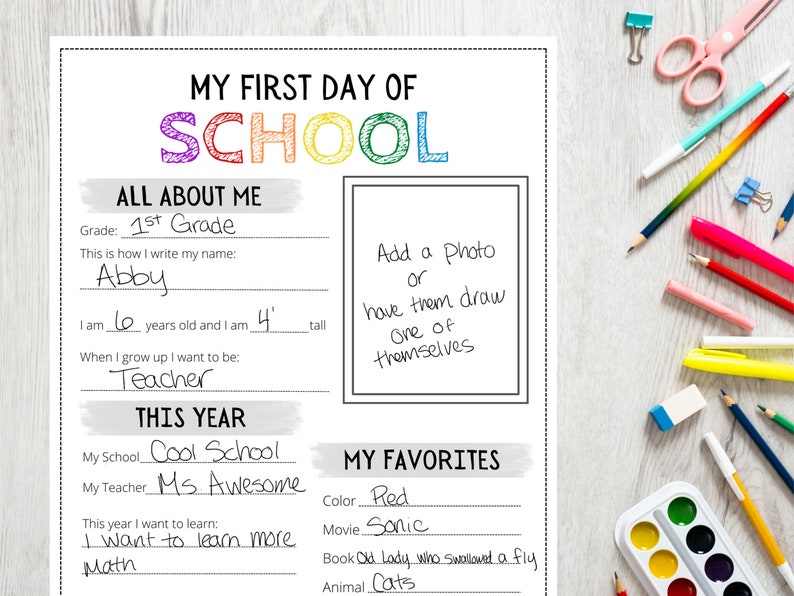 MY FIRST DAY OF
SCHOOL
ALL ABOUT ME
Grade: 1st Grade
This is how I write my name:
Abby
I am 6 years old and I am 4' tall
When I grow up I want to be:
Teacher
Add a photo
or
have them draw
one of
themselves
THIS YEAR
My School Cool School
My Teacher Ms Awesome
This year I want to learn:
I want to learn more
Math
MY FAVORITES
Color Red
Movie Sonic
Book Old Lady who swallowed a fly
Animal Cats